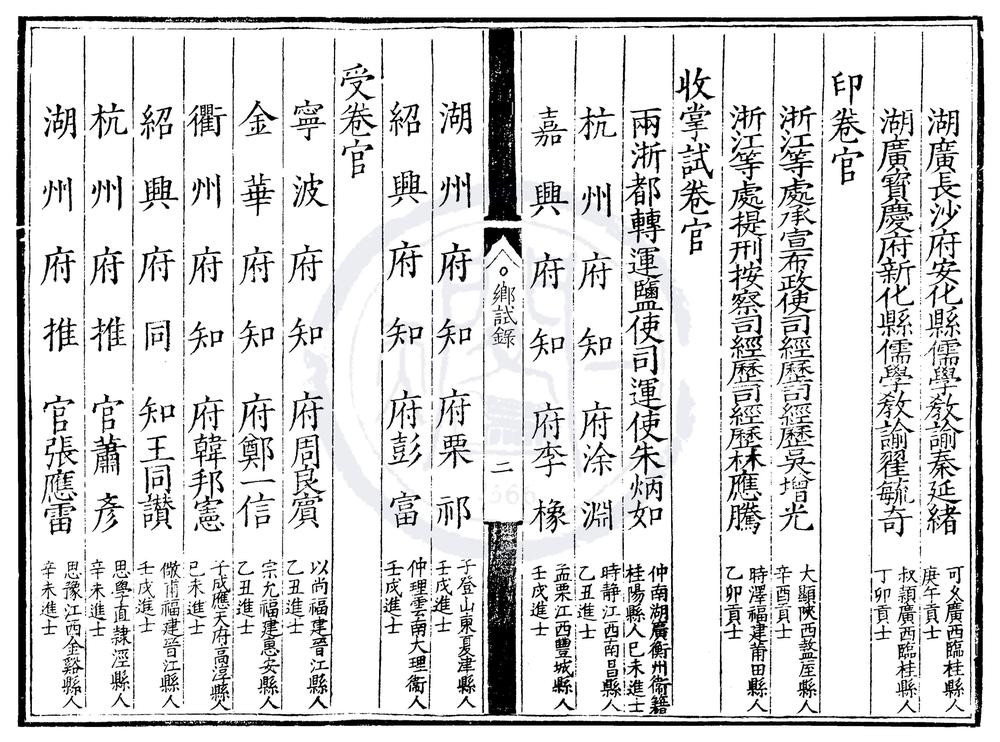 湖廣長沙府安化縣儒學教諭秦延緒
可久廣西臨桂縣人
庚午貢士
湖廣寶慶府新化縣儒學教諭翟毓奇
叔穎廣西臨桂縣人
丁卯貢士
印卷官
浙江等處承宣布政使司經歷司經歷吳增光
大顯陝西盩厔縣人
辛酉貢士
浙江等處提刑按察司經歷司經歷林應騰
時澤福建莆田縣人
乙卯貢士
收掌試卷官
兩浙都轉運鹽使司運使朱炳如
仲南湖廣衡州衞籍
桂陽縣人己未進士
杭州府知府涂淵
時靜江西南昌縣人
乙丑進士
嘉興府知府李橡
孟栗江西豐城縣人
壬戌進士
鄉試錄
二
湖州府知府栗祁
子登山東夏津縣人
壬戌進士
紹興府知府彭富
仲理雲南大理衞人
壬戌進士
受卷官
寧波府知府周良賓
以尚福建晉江縣人
乙丑進士
金華府知府鄭一信
宗允福建惠安縣人
乙丑進士
衢州府知府韓邦憲
子成應天府高淳縣人
己未進士
紹興府同知王同讃
儆甫福建晉江縣人
壬戌進士
杭州府推官蕭彥
思學直隸涇縣人
辛未進士
湖州府推官張應雷
思豫江西金谿縣人
辛未進士